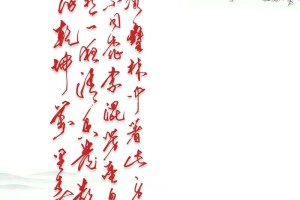 雪林中著此身
不同桃李混芳塵忽
然一夜清香發散
作乾坤萬里春